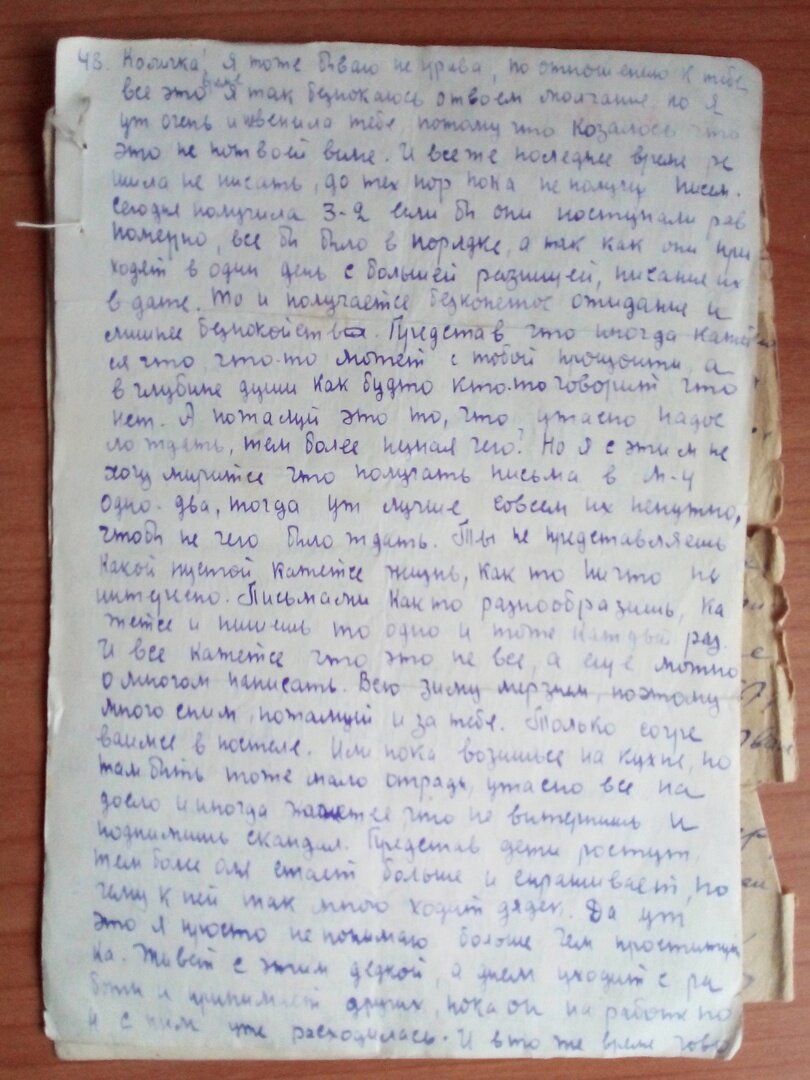 43. Количка! Я тоже бываю не права, по отношению к тебе
все это Я так безпокаюсь о твоем молчание, но я
уж очень и невенила тебе, потому что козалось что
это не по твоей вине. И все же последнее время ре
шила не писать, до тех пор пока не получу писем.
Сегодня получила 3-2 если бы они поступали рав
номерно, все бы было в порядке, а так как они при
ходят в один день с большей разницей, писания их
в дате. То и получаетсе безконетое ожидание и
лишнее безпокойства. Представ что иногда кажет
ся что, что-то может с тобой произоити, а
в глубине души как будто кто-то говорит что
нет. А пожалуй это то, что ужасно надое
ло ждать, тем более незная чего? Но я с этим не
хочу миритсе что получать письма в м-ц
одно-два, тогда уж лучше совсем их ненужно,
чтобы не чего было ждать. Ты не представляешь
какой пустой кажетсе жизнь, как то ничто не
интересно. Письмами как то разнообразишь, ка
жетсе и пишешь то одно и тоже каждый раз.
И все кажетсе что это не все, а еще можно
о многом написать. Всю зиму мерзнем, поэтому
много спим, пожалуй и за тебя. Только согре
ваимсе в постеле. Или пока возишьсе на кухне, но
там быть тоже мало отрады, ужасно все на
доело и иногда кажетсе, что не вытерпишь и
поднимишь скандал. Представ дети ростут,
тем боле оля стает больше и спрашивает, по
чему к ней так много ходит дядек. Да уж
это я просто не понимаю больше чем проститут
ка. Живет с этим дедкой, а днем уходит с ра
боты и принимает других, пока он на работе но
и с ним уже расходилась. И в то же время гово